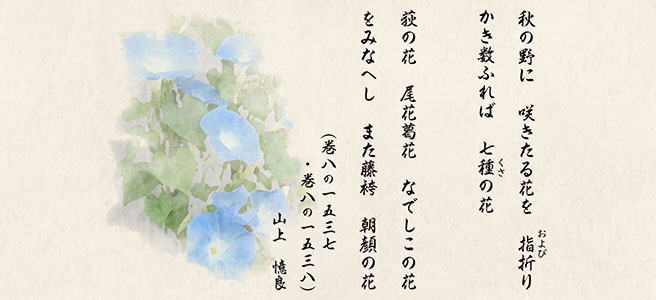 秋の野に　咲きたる花を　指折り
および
かき数ふれば　七種の花
くさ
萩の花　尾花葛花　なでしこの花
をみなへし　また藤袴　朝顔の花
（巻八の一五三七
・巻八の一五三八）
山上　憶良